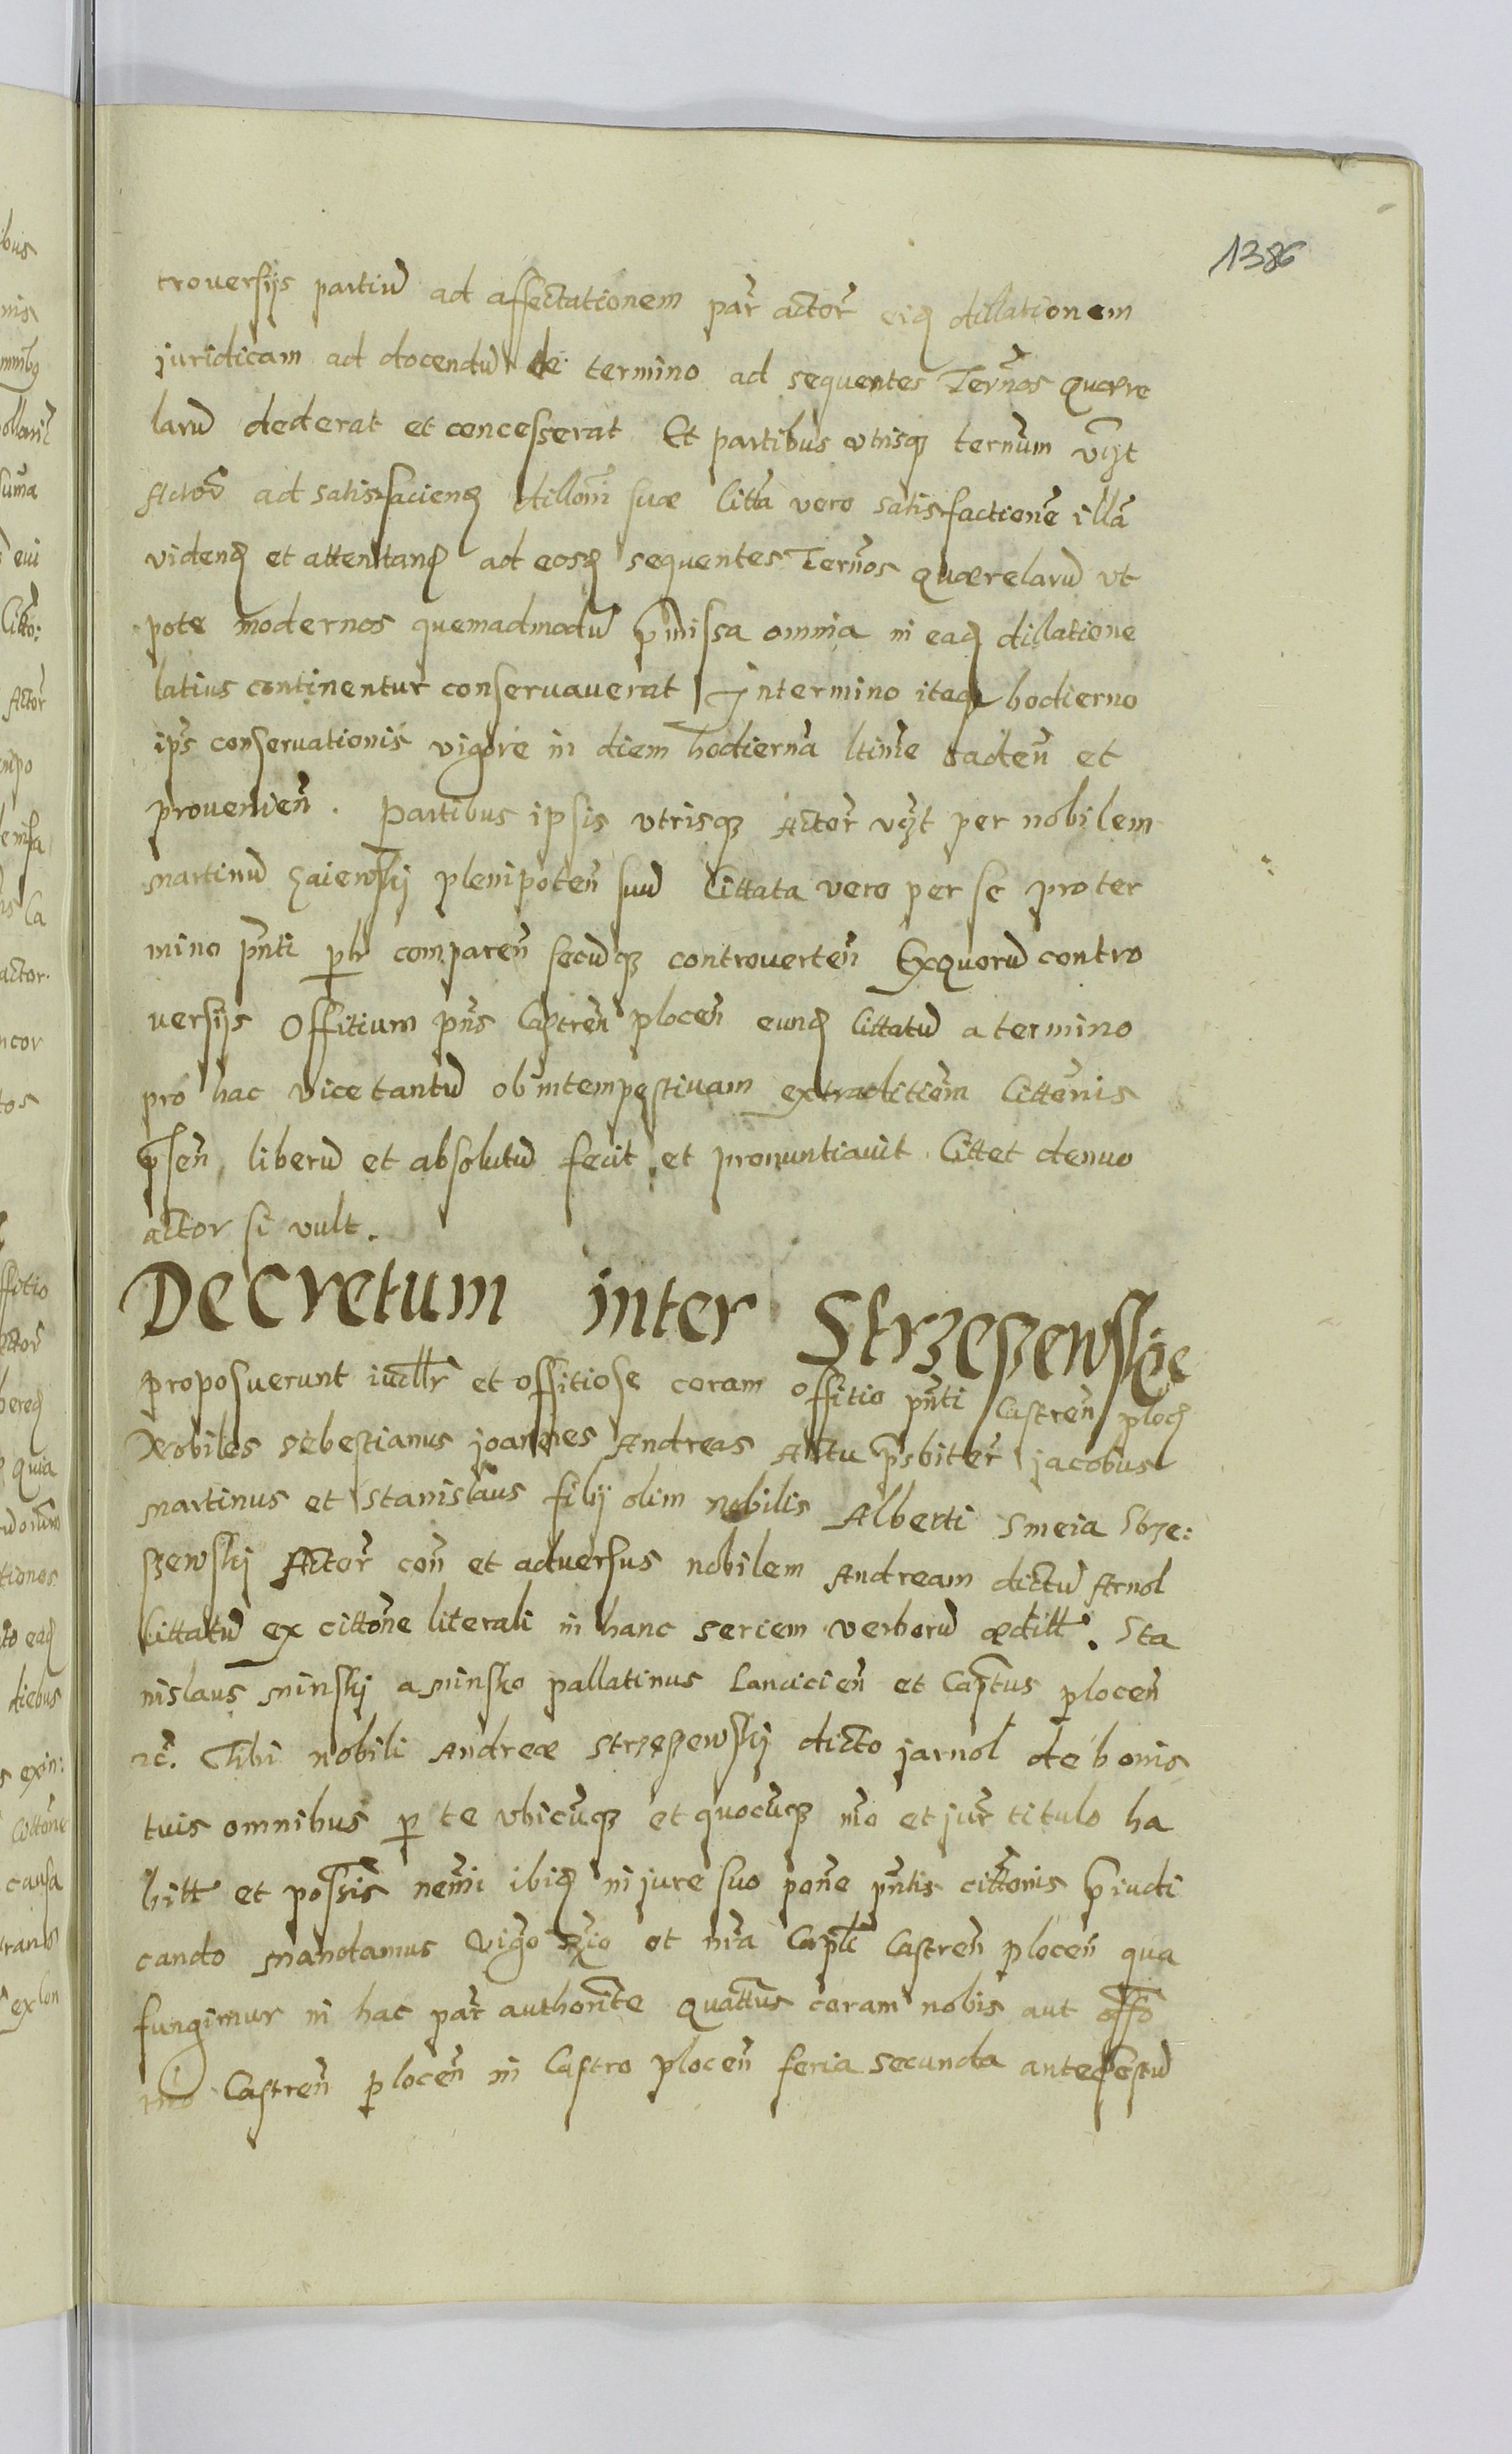 1386
troversÿs partiu᷃ ad affectationem par̃ actor̃ eiq dillationem
juridicam ad docendu᷃ de termino ad sequentes Ter̃nos Quære
laru᷃ dederat et concesserat Et partibus vtrisqꝫ ter̃num vꝫt
Actor̃ ad satisfaciend dillõni suæ Citt̃a vero satisfactione᷃ illa᷃
videnđ et attentanđ ad eosđ sequentes Ter̃nos Quærelaru᷃ vt
pote modernos quemadmodu᷃ p̃missa omnia in eađ dillatione
latius continentur conservaverat Jntermino itaqꝫ hodierno
ip̃s conservationis vigore in diem hodierna᷃ ltim̃e caden̄ et
provenien̄. Partibus ipsis vtrisqꝫ Actor̃ vꝫt per nobilem
Martinu᷃ Zaiewskj plenipoten̄ suu᷃ Cittata vero per se pro ter
mino pñti ꝑlr comparen̄ secu᷃qꝫ controverten̄ Exquoru᷃ contro
versÿs Offitium pñs Castren̄ plocen̄ eunđ Cittatu᷃ a termino
pro hac vice tantu᷃ ob intempestivam extraditiem̃ Citte᷃nis
p̃sen̄ liberu᷃ et absolutu᷃ fecit et pronuntiavit Cittet denuo
actor si vult.
Decretum inter Strzeszewskie
Proposuerunt iudllr̃ et offitiose coram offitio pñti Castren̄ plocđ
Nobiles Sebestianus joannes Andreas Actu p̃sbiter̃ jacobus
Martinus et Stanislaus filÿ olim nobilis Alberti Smeia Strze:
szewskj Actor̃ con̄ et adversus nobilem Andream dictu᷃ Arnol
Cittatu᷃ ex cittõne literali in hanc seriem verboru᷃ æditt. Sta
nislaus Minskj a Minsko pallatinus Lancicien̄ et Cap̃tus plocen̄
ꝛc̃. Tibi nobili Andreæ Strzeszewskj dicto jarnol de bonis
tuis omnibus ꝑ te vbicu᷃qꝫ et quocu᷃qꝫ m̃o et jur̃ titulo ha
bitt et possis nem̃i ibiđ in jure suo pon̄e pñtis cittõnis p̃iudi
cando Mandamus Vigo᷃ Rgio et nr̃a Capli Castren̄ plocen̄ qua
fungimur in hac par̃ authorit̃e Quatt̃us coram nobis aut off̃o
nr̃o Castren̄ plocen̄ in Castro plocen̄ feria secunda ante festu᷃